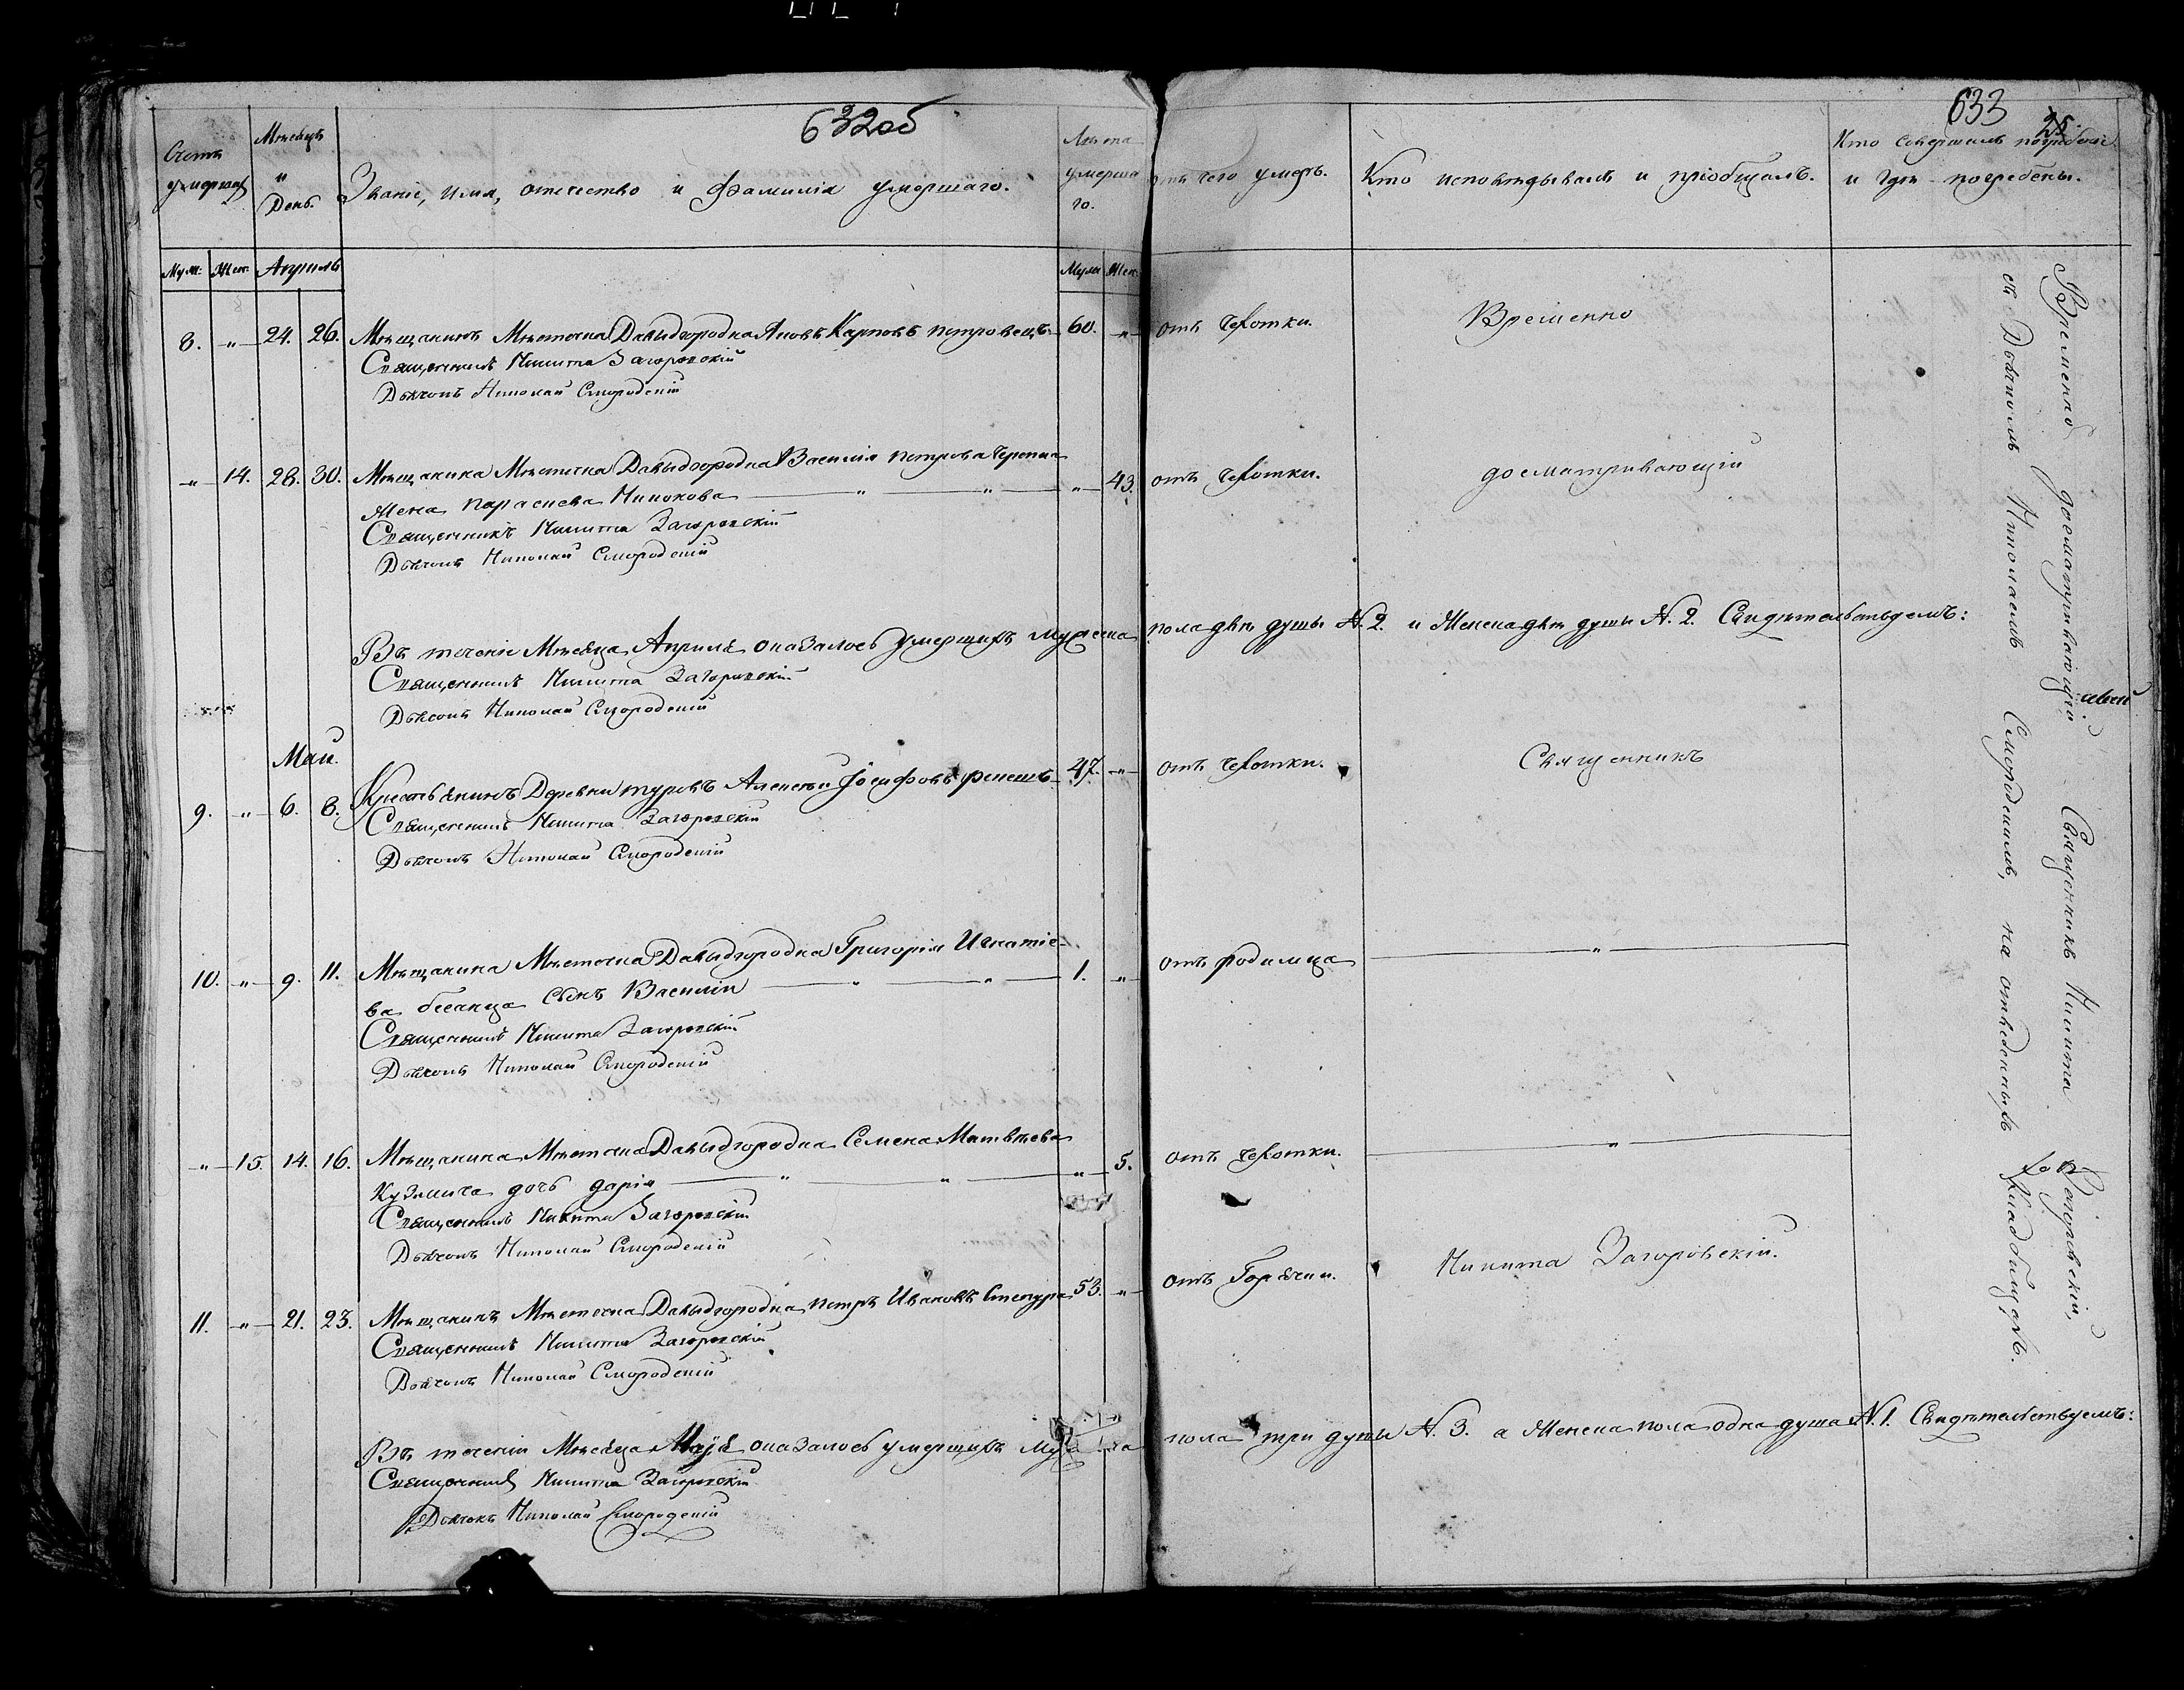 632об
633
25
Счетъ умершихъ
Мѣсяцъ и День.
Званіе, имя, отечество и фамилія умершаго.
Лѣта умершаго.
отъ чего умеръ.
Кто исповѣдывалъ и пріобщалъ.
Кто совершалъ погребеніе и гдѣ погребены.
Муж: Жен: Апрѣль Муж: Жен:
8. „ 24. 26. Мѣщанинъ Мѣстечка Давыдгородка Яковъ Карповъ петровецъ 60. „ отъ чехотки. Временно
Священникъ Никита Загоровскій
Дьячокъ Николай Смородскій
„ 14. 28. 30. Мѣщанина Мѣстечка Давыдгородка Василія петрова
Жена параскева 43. отъ чехотки. досматривающій
Священникъ Никита Загоровскій
Дьячокъ Николай Смородскій
Въ теченіе Мѣсяца Апрѣля оказалось умершихъ мужеска пола двѣ души №. 2. и Женска двѣ души №. 2. Свидѣтельствуемъ:
Священникъ Никита Загоровскій
Дьячокъ Николай Смородскій
Май.
9. „ 6. 8. Крестьянинъ Деревни туровъ Алексѣй Іосифовъ 47. „ отъ чехотки. Священникъ
Священникъ Никита Загоровскій
Дьячокъ Николай Смородскій
10. „ 9. 11. Мѣщанина Мѣстечка Давыдгородка Григорія Игнатіе-
ва сынъ Василій „ „ 1. „ отъ родимца „
Священникъ Никита Загоровскій
Дьячокъ Николай Смородскій
„ 15. 14. 16. Мѣщанина Мѣстечка Давыдгородка Семена Матвѣева
Кузмича дочь дарія „ „ „ 5. отъ чехотки. „
Священникъ Никита Загоровскій
Дьячокъ Николай Смородскій
11. „ 21. 23. Мѣщанинъ Мѣстечка Давыдгородка петръ Ивановъ 53. „ отъ Горячки. Никита Загоровскій.
Священникъ Никита Загоровскій
Дьячокъ Николай Смородскій
Въ теченіи Мѣсяца Маія оказалось умершихъ пола три души №. 3. а Женска пола одна душа №. 1. Свидѣтельствуемъ:
Священникъ Никита Загоровскій
Дьячокъ Николай Смородскій
Временно досматривающій Священникъ Никита Загоровскій,
съ Дьячкомъ Николаемъ на отведенныхъ кладбищахъ.